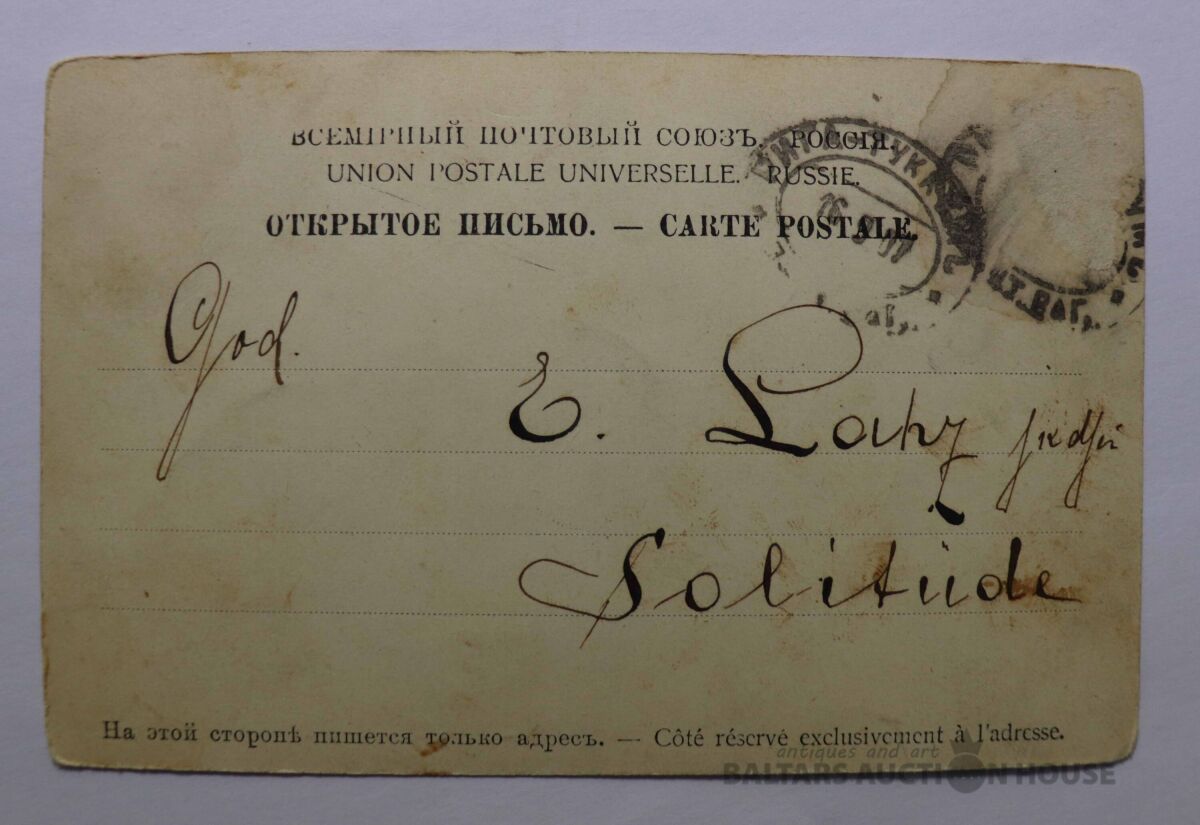 ВСЕМІРНЫЙ ПОЧТОВЫЙ СОЮЗЪ. РОССІЯ.
UNION POSTALE UNIVERSELLE. RUSSIE.
ОТКРЫТОЕ ПИСЬМО. — CARTE POSTALE.
26 9 07
God.
E. Lahz
Solitüde
На этой сторонѣ пишется только адресъ. — Côté réservé exclusivement à l'adresse.
antiques and art
BALTARS AUCTION HOUSE